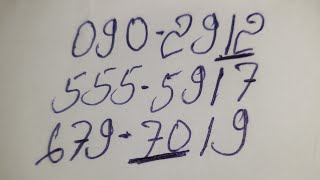 090-2912
555-5917
679-7019